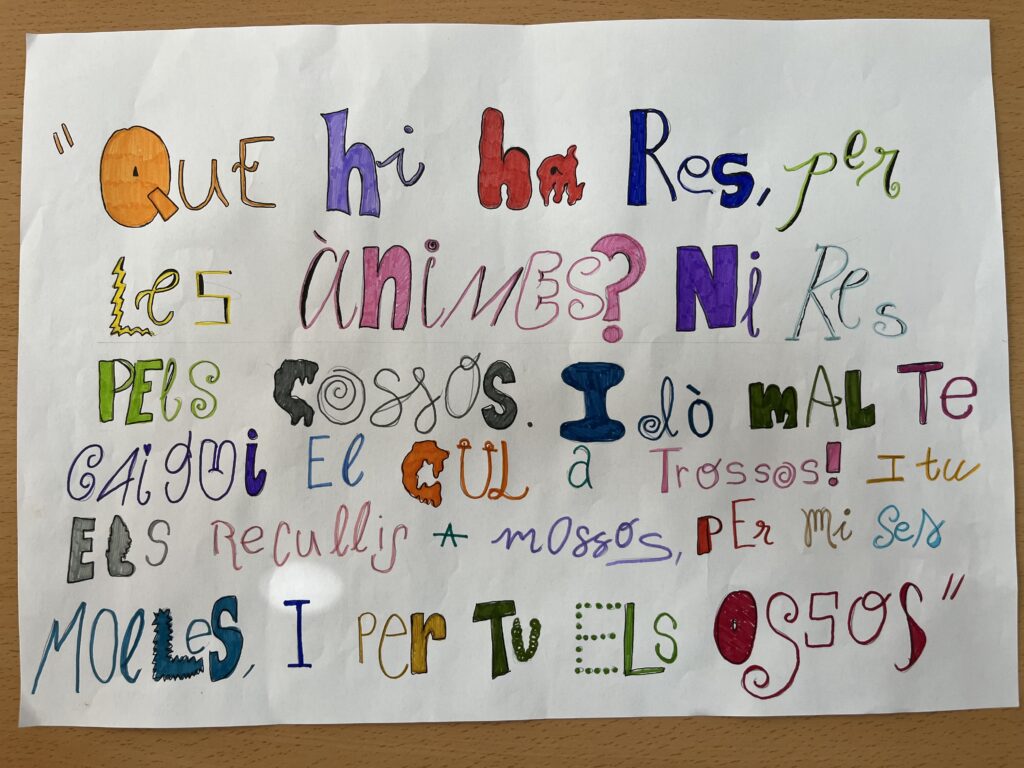 "Que hi ha Res, per
les ànimes? Ni Res
pels cossos. Idò mal Te
caigui El cul a Trossos! I tu
Els Recullis A mossos, per mi ses
molles, I per Tu Els ossos"